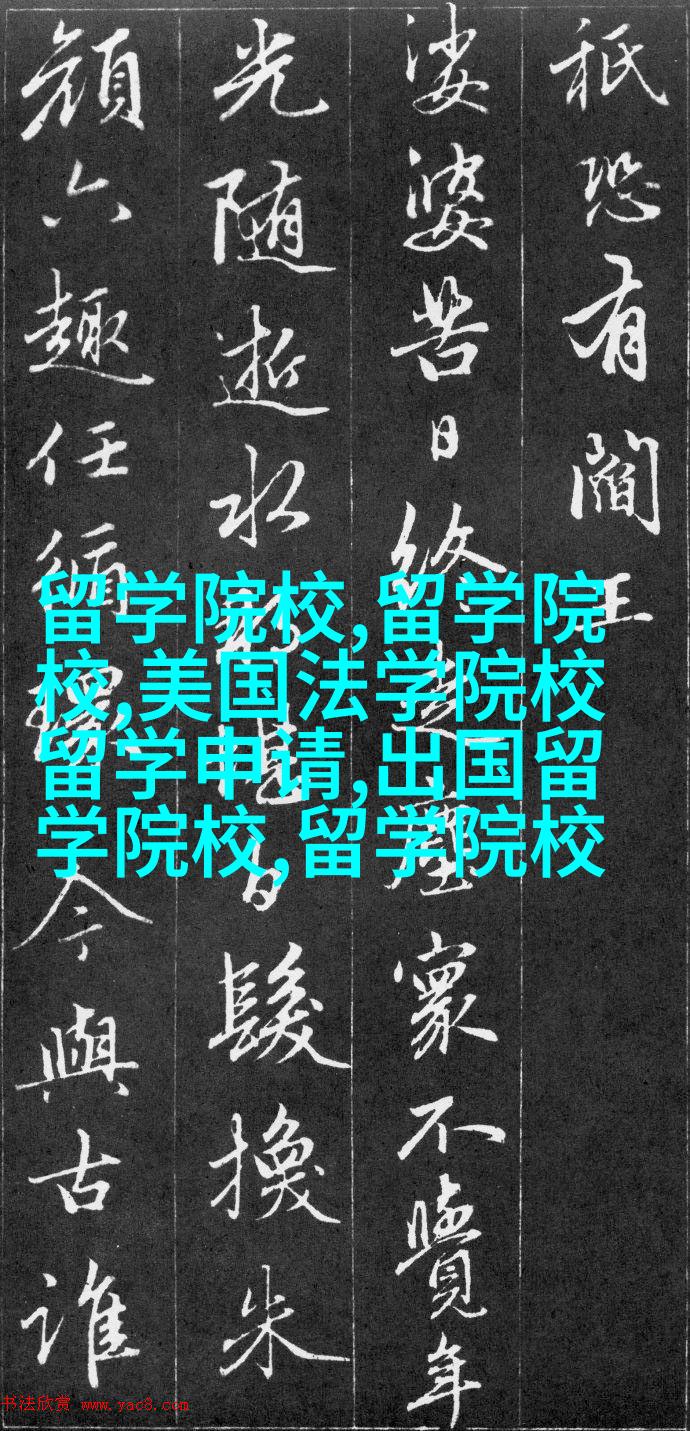 祇恐有閻王
娑婆苦日終塵寰不覺年
光隨逝水白髮換朱
顏六趣任循環今與古誰
留学院校,留学院
校,美国法学院校
留学申请,出国留
学院校,留学院校
书法欣赏 www.yac8.com